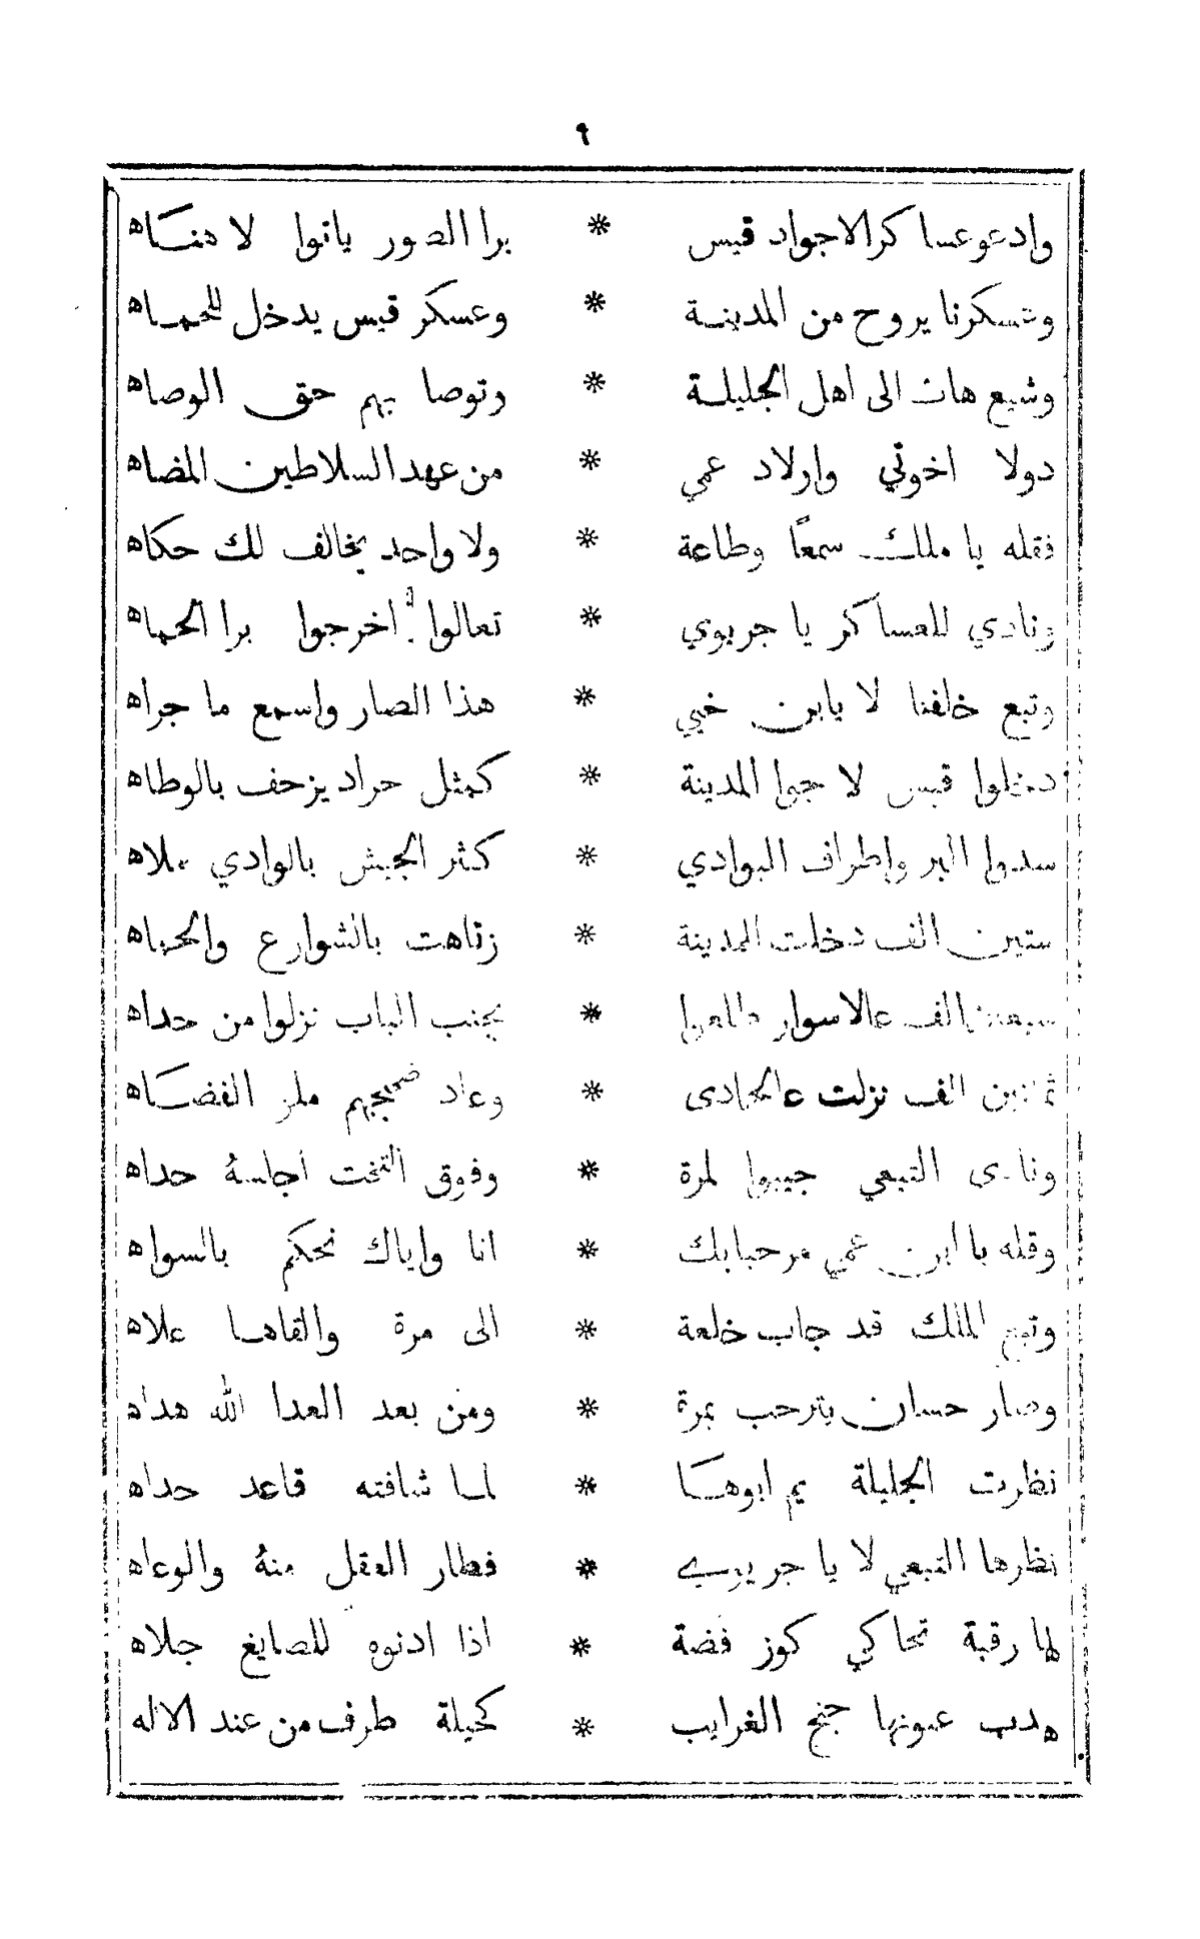 ٩
وادعو عساكر الاجواد قيس * برا الصور ياتوا لا هناه
وعسكرنا يروح من المدينة * وعسكر قيس يدخل للحماه
وشيع هات الى اهل الجليلة * وتوصا بهم حق الوصاه
دولا اخوتي واولاد عمي * من عهد السلاطين المضاه
فقله يا ملك سمعًا وطاعة * ولا واحد يخالف لك حكاه
ونادي للعساكر يا جريوي * تعالوا اخرجوا برا الحماه
وتبع خلفنا لا يابن خيي * هذا الصار واسمع ما جراه
دخلوا قيس لا جوا المدينة * كمثل جراد يزحف بالوطاه
سدوا البر واطراف البوادي * كثر الجيش بالوادي ملاه
ستين الف دخلت المدينة * زتاهت بالشوارع والحماه
سبعين الف عالاسوار طلعوا * بجنب الباب نزلوا من حداه
ثمانين الف نزلت عالحادى * وعاد ضجيجهم ملو الفضاه
ونادى التبعي جيبوا لمرة * وفوق التخت اجلسهُ حداه
وقله يا ابن عمي مرحبابك * انا واياك نحكم بالسواه
الملك قد جاب خلعة * الى مرة والقاها علاه
وصار حسان يترحب بمرة * ومن بعد العدا الله هداه
نظرت الجليلة يم ابوها * لما شافته قاعد حداه
نظرها التبعي لا يا جريوي * فطار العقل منهُ والوعاه
لها رقبة تحاكي كوز فضة * اذا ادنوه للصايغ جلاه
هدب عيونها جنح الغرايب * كحيلة طرف من عند الاله